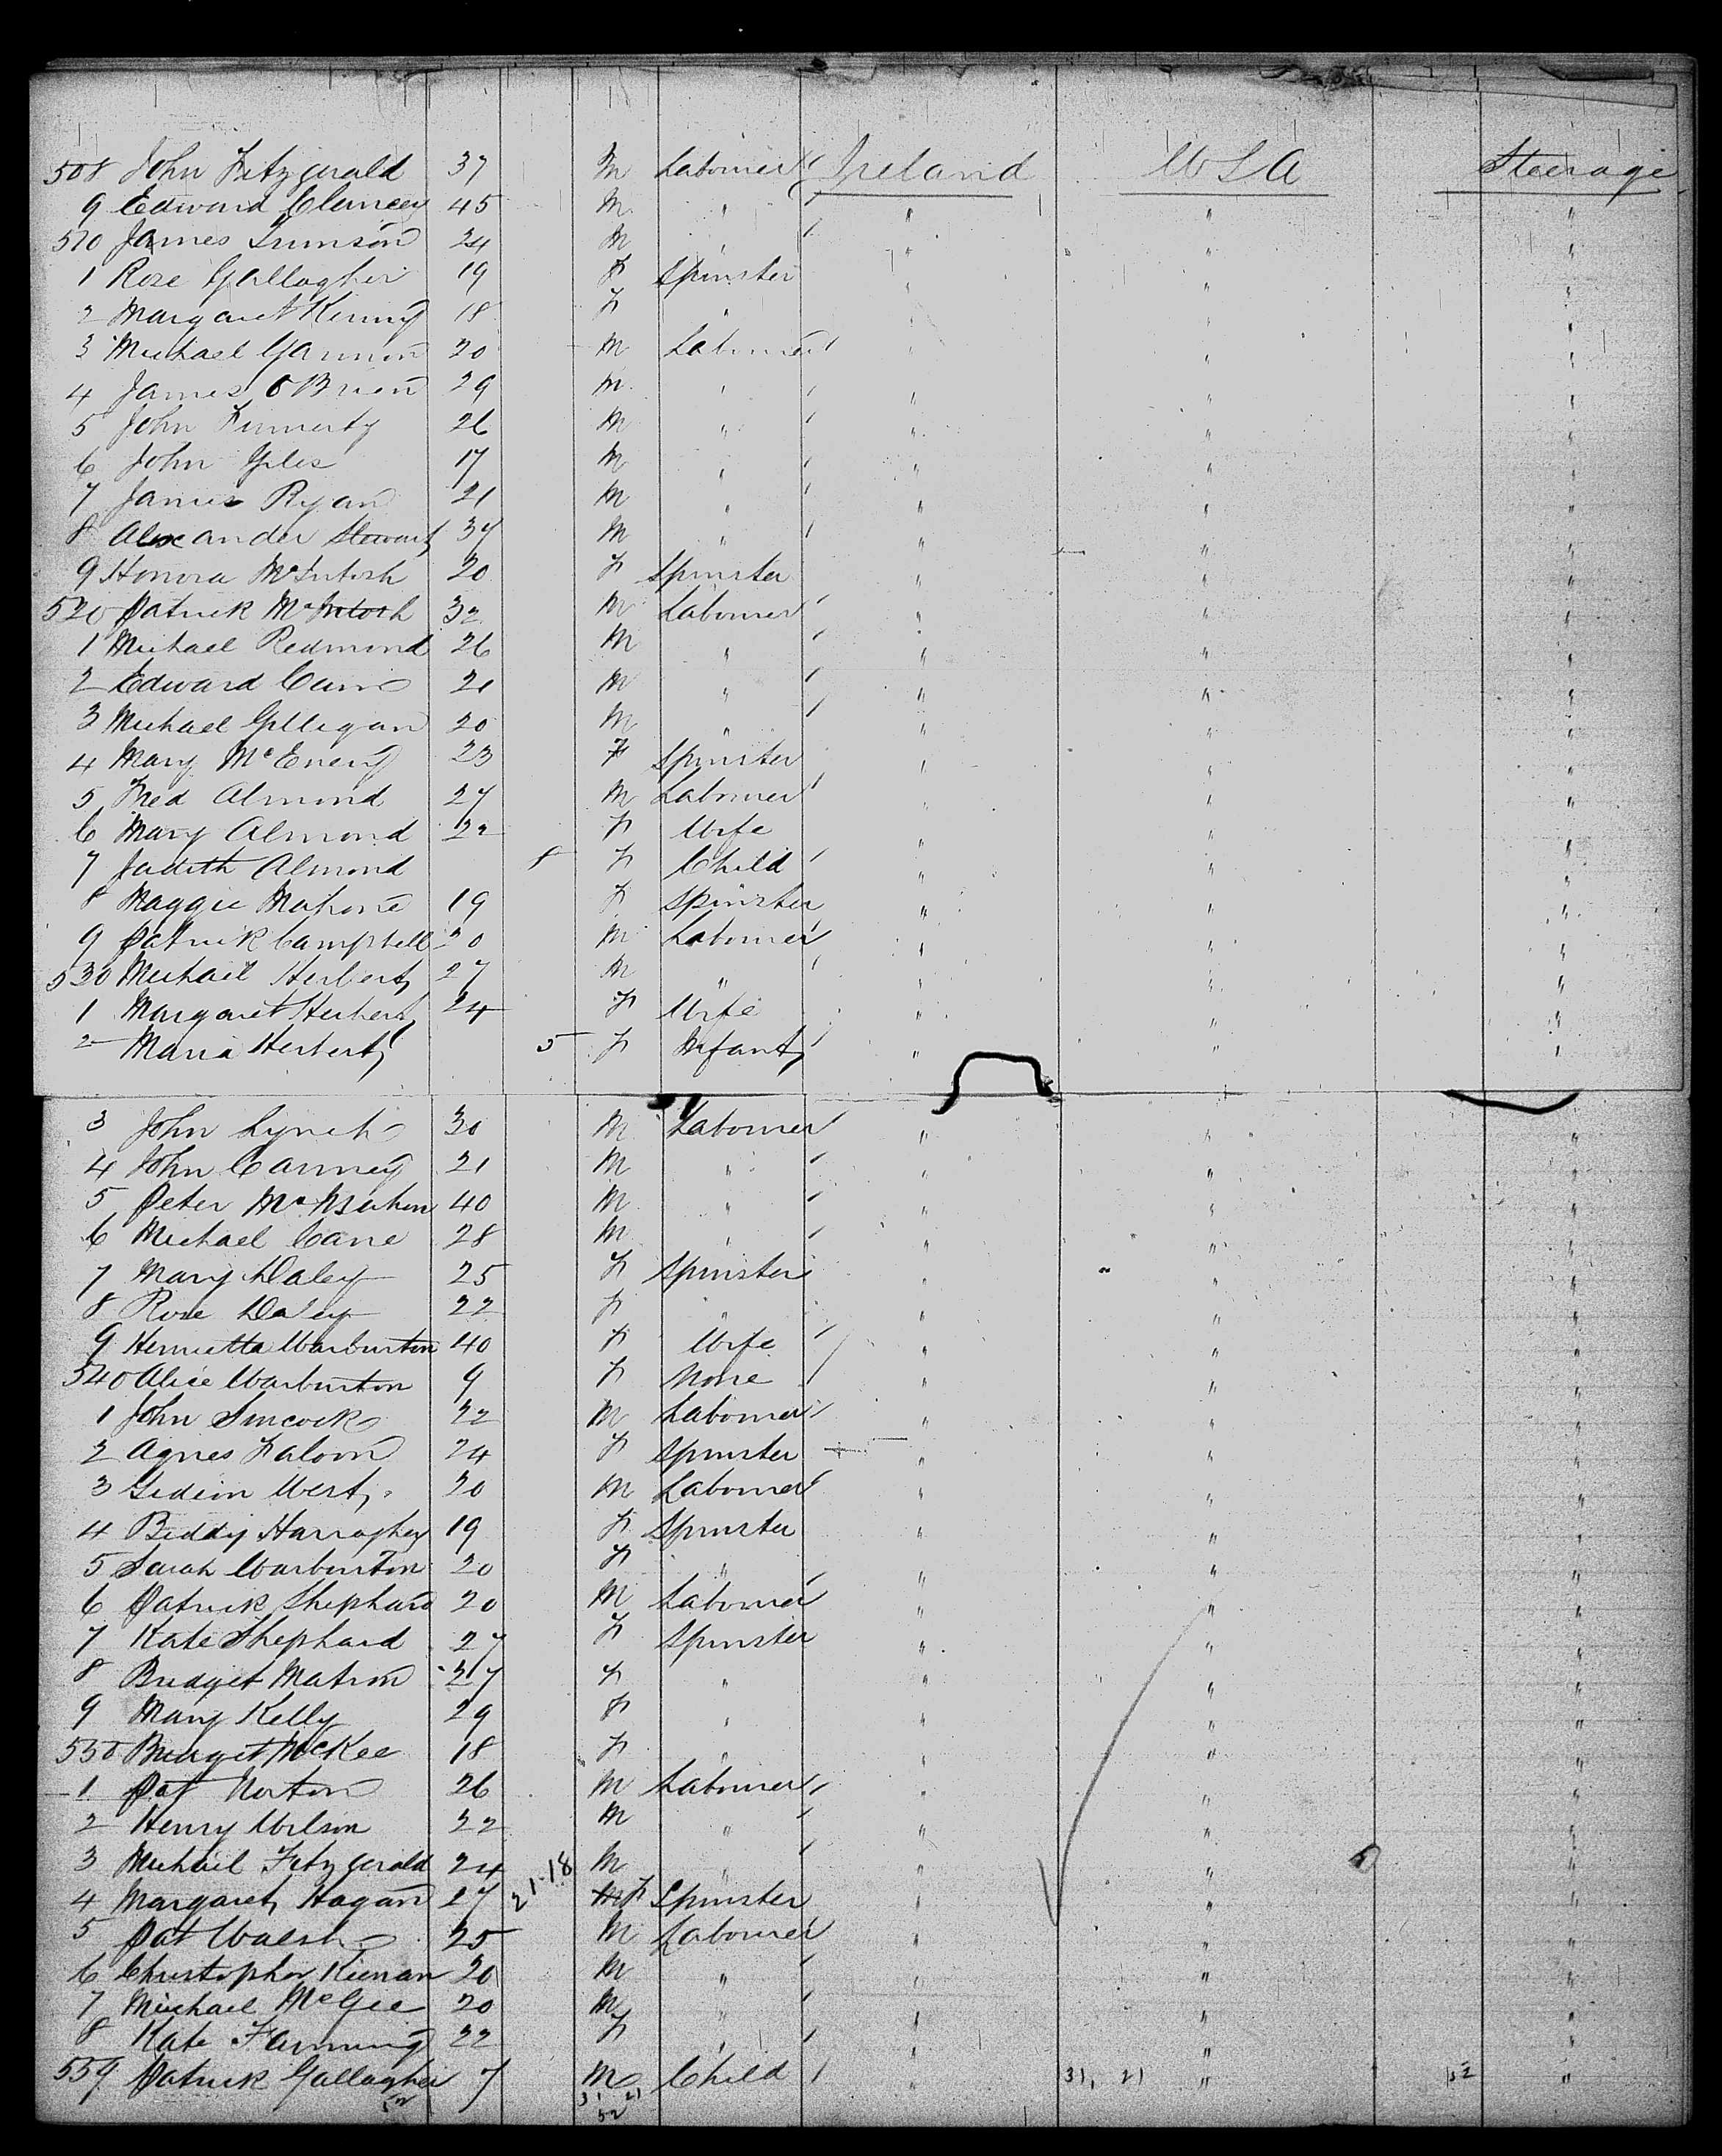 508 John Fitzgerald 37 M Labourer Ireland USA Steerage
9 Edward Clancey 45 M " " " "
510 James 24 M " " " "
1 Rose Gallagher 19 F Spinster " " "
2 Margaret Kenny 18 F " " " "
3 Michael Gannon 20 M Labourer " " "
4 James O Brien 29 M " " " "
5 John Finnerty 26 M " " " "
6 John Giles 17 M " " " "
7 James Ryan 21 M " " " "
8 Alexander Stewart 34 M " " " "
9 Honora McIntosh 20 F Spinster " " "
520 Patrick McIntosh 32 M Labourer " " "
1 Michael Redmond 26 M " " " "
2 Edward 21 M " " " "
3 Michael Gilligan 20 M " " " "
4 Mary McEnery 23 F Spinster " " "
5 Fred Almond 27 M Labourer " " "
6 Mary Almond 22 F Wife " " "
7 Judith Almond 8 F Child " " "
8 Maggie Mahone 19 F Spinster " " "
9 Patrick Campbell 20 M Labourer " " "
530 Michael Herbert 27 M " " " "
1 Margaret Herbert 24 F Wife " " "
2 Maria Herbert 5 F Infant " " "
3 John Lynch 30 M Labourer " " "
4 John Canney 21 M " " " "
5 Peter 40 M " " " "
6 Michael Cane 28 M " " " "
7 Mary Daley 25 F Spinster " " "
8 Rose Daley 22 F " " " "
9 Henrietta Warburton 40 F Wife " " "
540 Alice Warburton 9 F None " " "
1 John Simcock 22 M Labourer " " "
2 Agnes Faloon 24 F Spinster " " "
3 Gideon West 20 M Labourer " " "
4 Biddy Harraghey 19 F Spinster " " "
5 Sarah Warburton 20 F " " " "
6 Patrick Shephard 20 M Labourer " " "
7 Kate Shephard 27 F Spinster " " "
8 Bridget Matron 27 F " " " "
9 Mary Kelly 29 F " " " "
550 Bridget McKee 18 F " " " "
1 Pat Norton 26 M Labourer " " "
2 Henry Wilson 22 M " " " "
3 Michael Fitzgerald 24 M " " " "
4 Margaret Hagan 27 21-18 F Spinster " " "
5 Pat Walsh 25 M Labourer " " "
6 Christopher Kiernan 20 M " " " "
7 Michael McGee 20 M " " " "
8 Kate Fanning 22 F " " " "
559 Patrick Gallagher 7 M Child " 31, 21 " 52 "
52 31 21
52